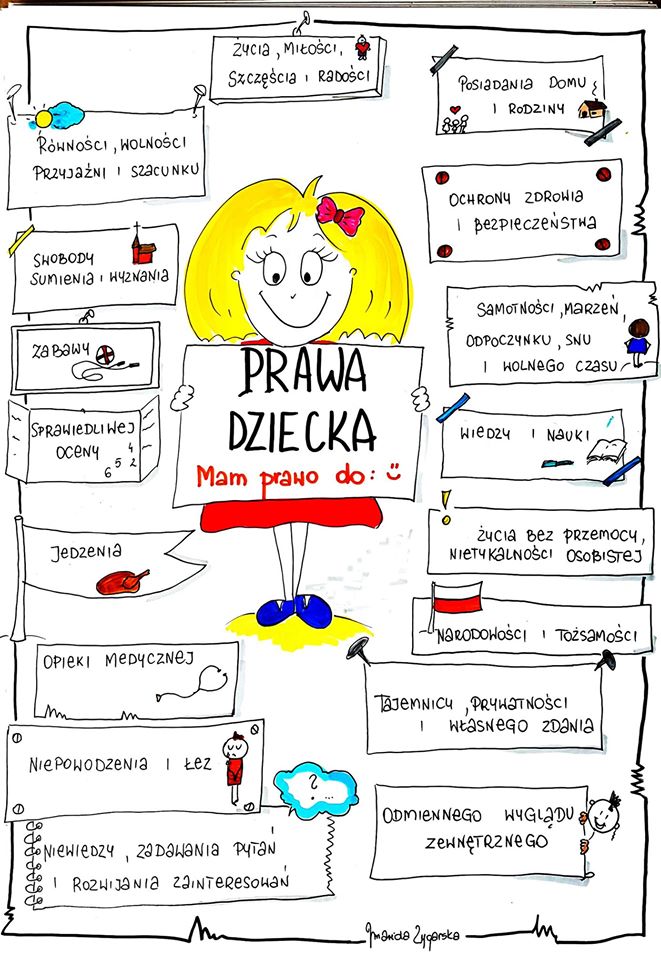 ŻYCIA, MIŁOŚCI,
SZCZĘŚCIA I RADOŚCI
POSIADANIA DOMU
I RODZINY
RÓWNOŚCI, WOLNOŚCI
PRZYJAŹNI I SZACUNKU
OCHRONY ZDROWIA
I BEZPIECZEŃSTWA
SWOBODY
SUMIENIA I WYZNANIA
SAMOTNOŚCI, MARZEŃ,
ODPOCZYNKU, SNU
I WOLNEGO CZASU
ZABAWY
PRAWA
DZIECKA
Mam prawo do:
SPRAWIEDLIWEJ
OCENY
4
6 5 2
WIEDZY I NAUKI
ŻYCIA BEZ PRZEMOCY,
NIETYKALNOŚCI OSOBISTEJ
JEDZENIA
NARODOWOŚCI I TOŻSAMOŚCI
OPIEKI MEDYCZNEJ
TAJEMNICY, PRYWATNOŚCI
I WŁASNEGO ZDANIA
NIEPOWODZENIA I ŁEZ
? ...
ODMIENNEGO WYGLĄDU
ZEWNĘTRZNEGO
NIEWIEDZY, ZADAWANIA PYTAŃ
I ROZWIJANIA ZAINTERESOWAŃ